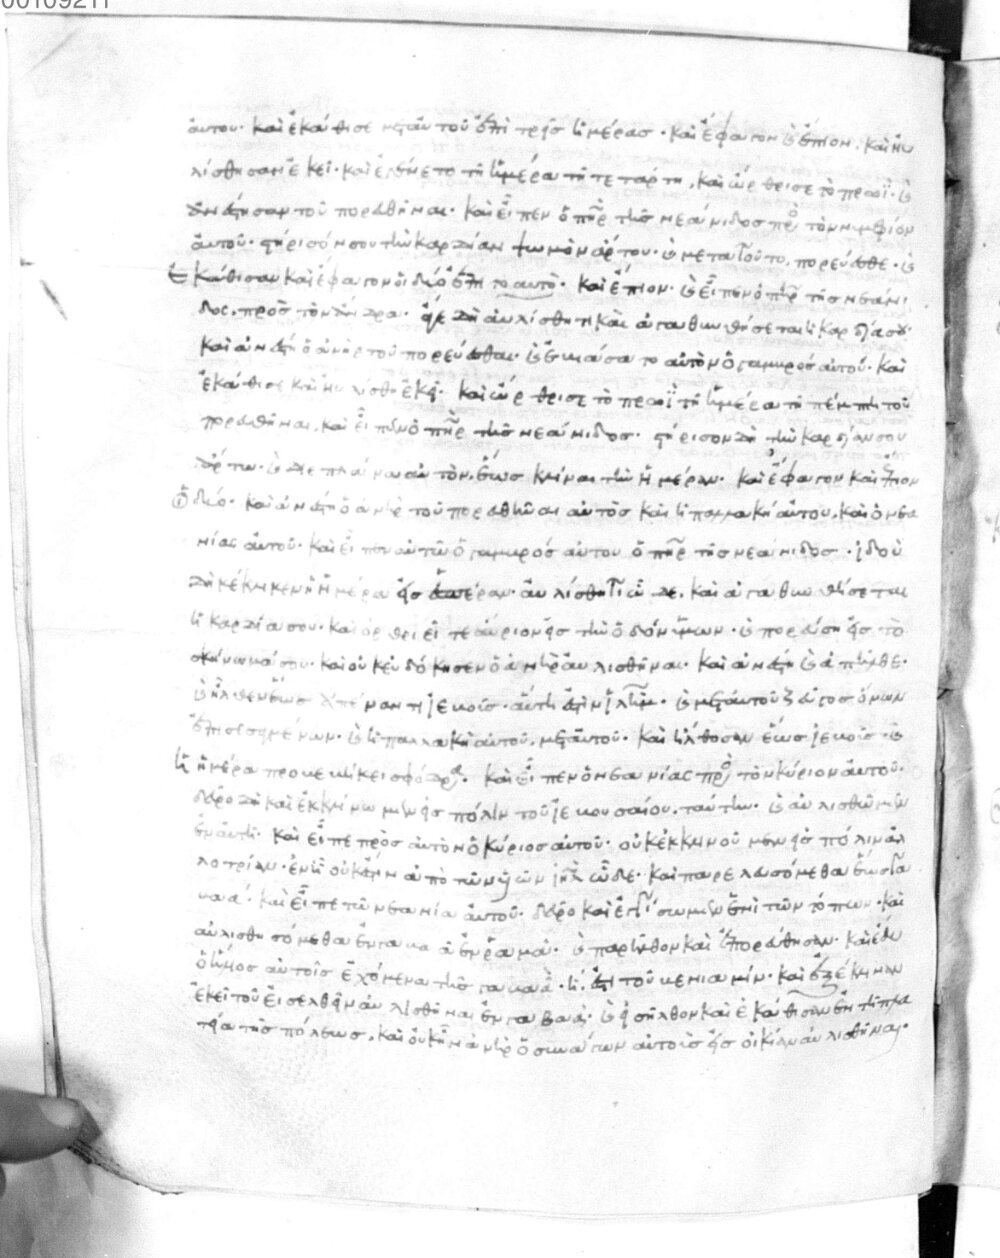 00109211
αὐτοῦ· καὶ ἐκάθισε μετ αὐτοῦ ἐπὶ τρεῖς ἡμέρας· καὶ ἔφαγον καὶ ἔπιον. καὶ ηὐ
λίσθησαν ἐκεῖ· καὶ ἐγένετο τῆ ἡμέρα τῆ τετάρτη, καὶ ὤρθρισε τὸ πρωῒ· καὶ
ἀνέστησαν τοῦ πορευθῆναι· καὶ εἶπεν ὁ πηρ τῆς νεάνιδος πρὸς τὸν νυμφίον
αὐτοῦ· στήρισόν σου τὴν καρδίαν ψωμὸν ἄρτου· καὶ μετὰ τοῦτο, πορεύεσθε· καὶ
ἐκάθισαν καὶ ἔφαγον οἱ δύο ἐπὶ το αυτὸ· καὶ ἔπιον· καὶ εἶπεν ὁ πηρ τῆς νεάνι
δος, πρὸς τὸν ἄνδρα· δὴ αὐλίσθητι καὶ ἀγαθυνθήσεται ἡ καρδία σου·
καὶ ἀνέστη ὁ ἀνὴρ τοῦ πορεύεσθαι· καὶ ἐβιάσατο αὐτὸν ὁ γαμβρός αὐτοῦ· καὶ
ἐκάθισε καὶ ηὐλίσθη ἐκεῖ· καὶ ὤρθρισε τὸ πρωῒ τῆ ἡμέρα τῆ πέμπτη τοῦ
πορευθῆναι, καὶ εἶπεν ὁ πηρ τῆς νεάνιδος· στήρισον δὴ τὴν καρδίαν σου
ἄρτω· καὶ αὐτον, ἕως κλίναι τὴν ἡμέραν· καὶ ἔφαγον καὶ ἔπιον
οἱ δύο· καὶ ἀνέστη ὁ ἀνὴρ τοῦ πορευθῆναι αὐτὸς καὶ ἡ παλλακὴ αὐτοῦ, καὶ ὁ νεα
νίας αὐτοῦ· καὶ εἶπεν αὐτῶ ὁ γαμβρός αὐτου ὁ πηρ τῆς νεάνιδος· ἰδοὺ
δὴ κέκλικεν ἡ ἡμέρα εἰς ἑσπέραν· αὐλίσθητι ὧδε, καὶ ἀγαθυνθήσεται
ἡ καρδία σου· καὶ ὀρθριεῖτε αὔριον εἰς τὴν ὁδὸν ὑμῶν· καὶ πορεύση εἰς τὸ
σκήνωμά σου· καὶ οὐκ εὐδόκησεν ὁ ἀνὴρ αὐλισθῆναι· καὶ ἀνέστη καὶ ἀπῆλθε·
καὶ ἦλθεν ἕως ἀπέναντι ἰεβούς· αὕτη ἐστὶν ἱλημ· καὶ μετ αὐτοῦ ζεῦγος ὄνων
ἐπισεσαγμένων· καὶ ἡ παλλακὴ αὐτοῦ, μετ αὐτοῦ· καὶ ἤλθοσαν ἕως ἰεβούς· καὶ
ἡ ἡμέρα προκεκλίκει σφόδρα· καὶ εἶπεν ὁ νεανίας πρὸς τὸν κύριον αὐτοῦ·
δεῦρο δὴ καὶ ἐκκλίνωμεν εἰς πόλιν τοῦ ἰεβουσαίου, ταύτην· καὶ αὐλισθῶμεν
ἐν αὐτῆ· καὶ εἶπε πρὸς αὐτὸν ὁ κύριος αὐτοῦ· οὐκ ἐκκλινοῦμεν εἰς πόλιν ἀλ
λοτρίαν· ἐν ἧ οὐκ ἔστιν ἀπὸ τῶν υἱῶν ιηλ ὧδε· καὶ παρελευσόμεθα ἕως γα
βαά· καὶ εἶπε τῶ νεανία αὐτοῦ· δεῦρο καὶ ἐγγίσωμεν ἑνὶ τῶν τόπων· καὶ
αὐλισθησόμεθα ἐν γαβαὰ ἢ ἐν ῥαμά· καὶ παρῆλθον καὶ ἐπορεύθησαν· καὶ ἔδυ
ὁ ἥλιος αὐτοῖς ἐχόμενα τῆς γαβαὰ· ἥ ἐστι τοῦ βενιαμίν· καὶ ἐξέκλιναν
ἐκεῖ τοῦ εἰσελθεῖν αὐλισθῆναι ἐν γαβαά· καὶ εἰσῆλθον καὶ ἐκάθισαν ἐν τῆ πλα
τεία τῆς πόλεως, καὶ οὐκ ἦν ἀνὴρ ὁ συνάγων αὐτοὺς εἰς οἰκίαν αὐλισθῆναι·